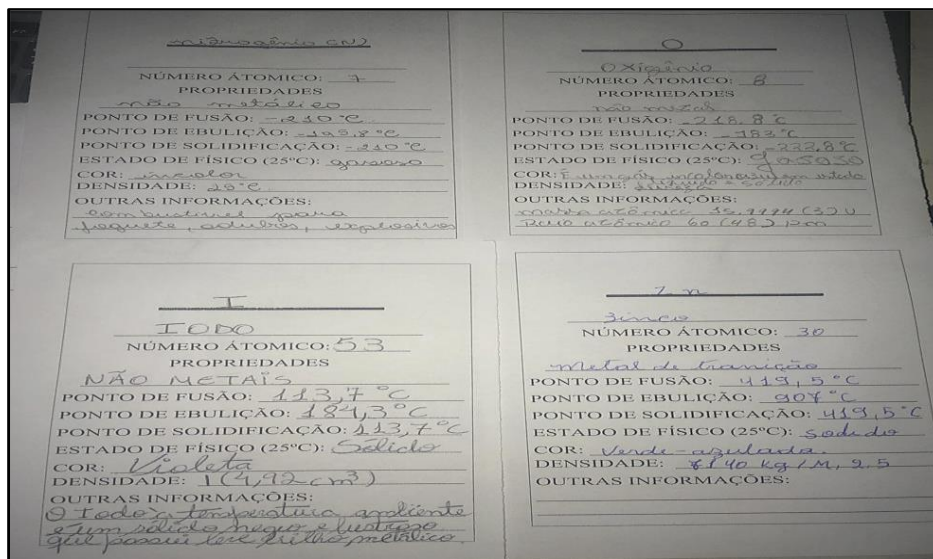 nitrogênio (N)
NÚMERO ÁTOMICO: 7
PROPRIEDADES
não metálico
PONTO DE FUSÃO: -210 °C
PONTO DE EBULIÇÃO: -195,8 °C
PONTO DE SOLIDIFICAÇÃO: -210 °C
ESTADO DE FÍSICO (25ºC): gasoso
COR: incolor
DENSIDADE: 20 °C
OUTRAS INFORMAÇÕES:
combustível para
foguete, adubos, explosivos
O
Oxigênio
NÚMERO ÁTOMICO: 8
PROPRIEDADES
não metal
PONTO DE FUSÃO: -218,8 °C
PONTO DE EBULIÇÃO: -183 °C
PONTO DE SOLIDIFICAÇÃO: -222,8 °C
ESTADO DE FÍSICO (25ºC): gasoso
COR: É um gás incolor em estado
DENSIDADE: líquido e sólido
OUTRAS INFORMAÇÕES:
massa atômica 15,9994 (3) U
Raio atômico 60 (48) pm
I
IODO
NÚMERO ÁTOMICO: 53
PROPRIEDADES
NÃO METAIS
PONTO DE FUSÃO: 113,7 °C
PONTO DE EBULIÇÃO: 184,3 °C
PONTO DE SOLIDIFICAÇÃO: 113,7 °C
ESTADO DE FÍSICO (25ºC): Sólido
COR: Violeta
DENSIDADE: I (4,92 cm³)
OUTRAS INFORMAÇÕES:
O Iodo à temperatura ambiente
é um sólido negro e lustroso
que possui leve brilho metálico.
Zn
zinco
NÚMERO ÁTOMICO: 30
PROPRIEDADES
Metal de tranição
PONTO DE FUSÃO: 419,5 °C
PONTO DE EBULIÇÃO: 907 °C
PONTO DE SOLIDIFICAÇÃO: 419,5 °C
ESTADO DE FÍSICO (25ºC):
COR: Verde-azulada.
DENSIDADE: 7140 kg/M, 2.5
OUTRAS INFORMAÇÕES: